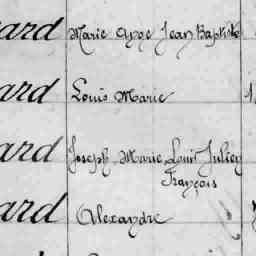 ard Marie Ange Jean Baptiste
ard Louis Marie
ard Joseph Marie Louis Julien
François
ard Alexandre